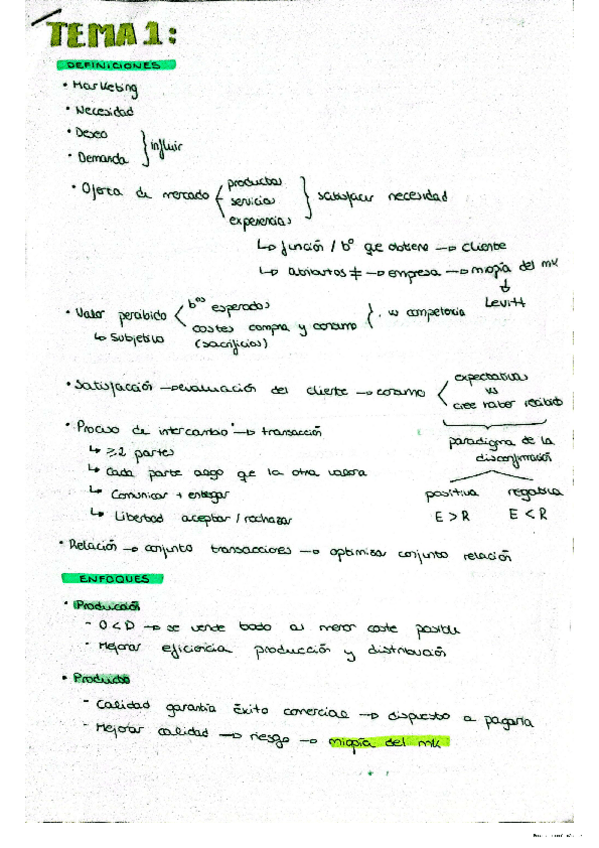 TEMA 1:
DEFINICIONES
• Marketing
• Necesidad
• Deseo
• Demanda } influir
• Oferta de mercado { productos servicios experiencias } satisfacer necesidad
↳ función / bº que obtiene → cliente
↳ atributos ≠ → empresa → miopía del MK
↓
Levitt
• Valor percibido { bºs esperados
costes compra y consumo } vs competencia
↳ Subjetivo (sacrificios)
• Satisfacción → evaluación del cliente → consumo { expectativas
vs
cree haber recibido
• Proceso de intercambio → transacción
↳ ≥2 partes
↳ Cada parte algo que la otra valora
↳ Comunicar + entregar
↳ Libertad aceptar / rechazar
paradigma de la
disconfirmación
positiva negativa
E > R E < R
• Relación → conjunto transacciones → optimizar conjunto relación
ENFOQUES
• Producción
- O < D → se vende todo al menor coste posible
- Mejorar eficiencia producción y distribución
• Producto
- Calidad garantía éxito comercial → dispuesto a pagarla
- Mejorar calidad → riesgo → miopía del MK